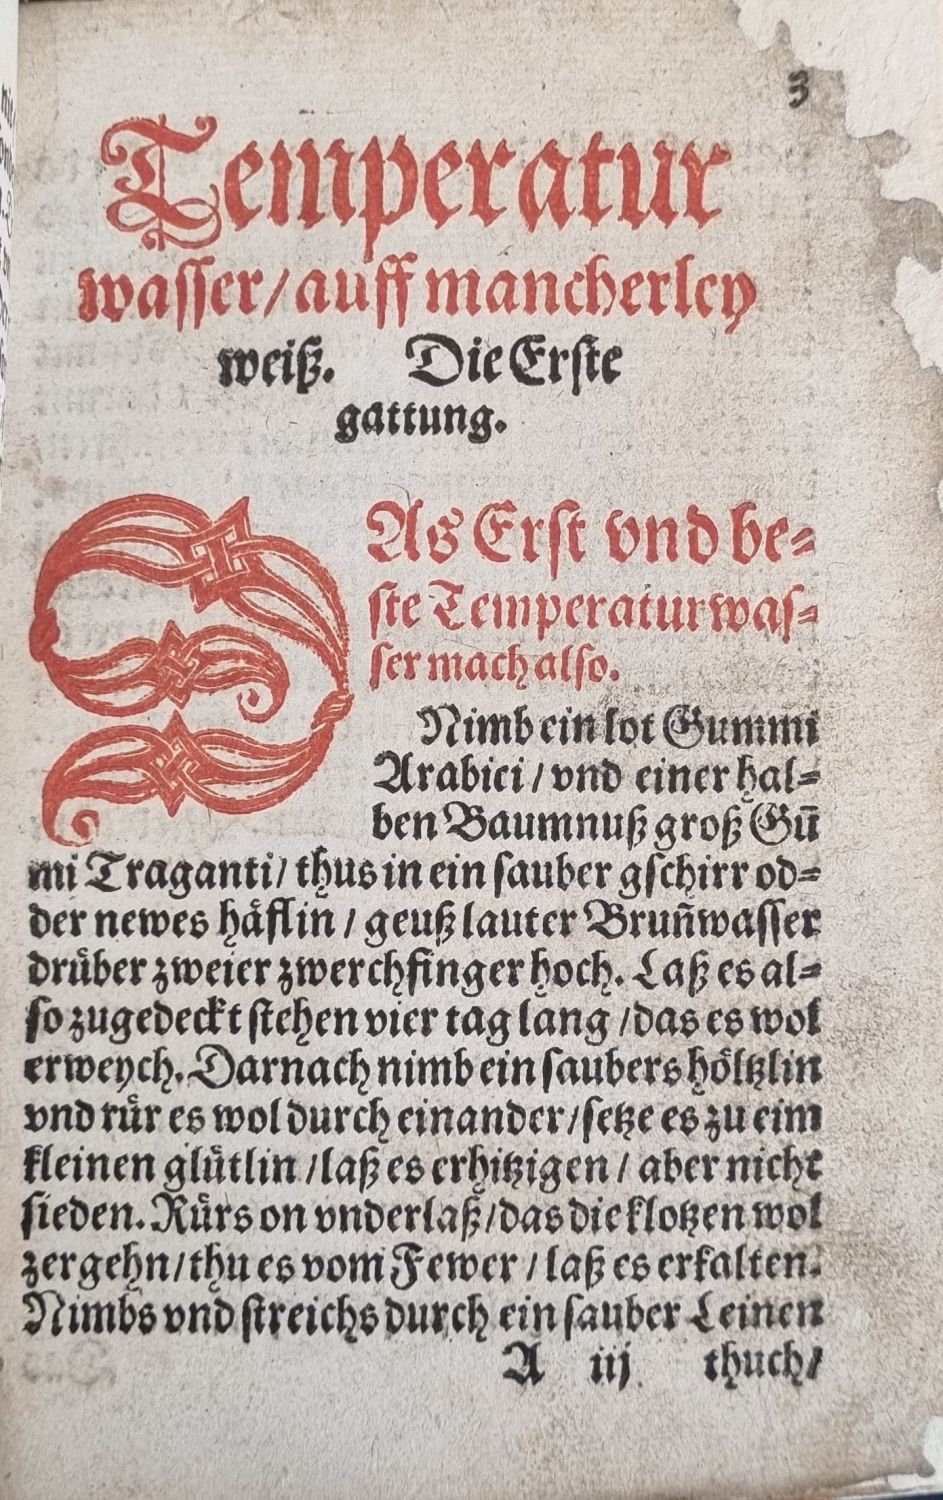 3
Temperatur
wasser/auff mancherley
weiß. Die Erste
gattung.
DAs Erst vnd be⸗
ste Temperaturwas⸗
ser mach also.
Nimb ein lot Gummi
Arabici/vnd einer hal⸗
ben Baumnuß groß Gum̄
mi Traganti/thus in ein sauber gschirr od⸗
der newes häflin/geuß lauter Brun̄wasser
drüber zweier zwerchfinger hoch. Laß es al⸗
so zugedeckt stehen vier tag lang/das es wol
erweych. Darnach nimb ein saubers höltzlin
vnd rür es wol durch einander/setze es zu eim
kleinen glütlin/laß es erhitzigen/aber nicht
sieden. Rürs on vnderlaß/das die klotzen wol
zergehn/thu es vom Fewer/laß es erkalten.
Nimbs vnd streichs durch ein sauber Leinen
A iij thuch/